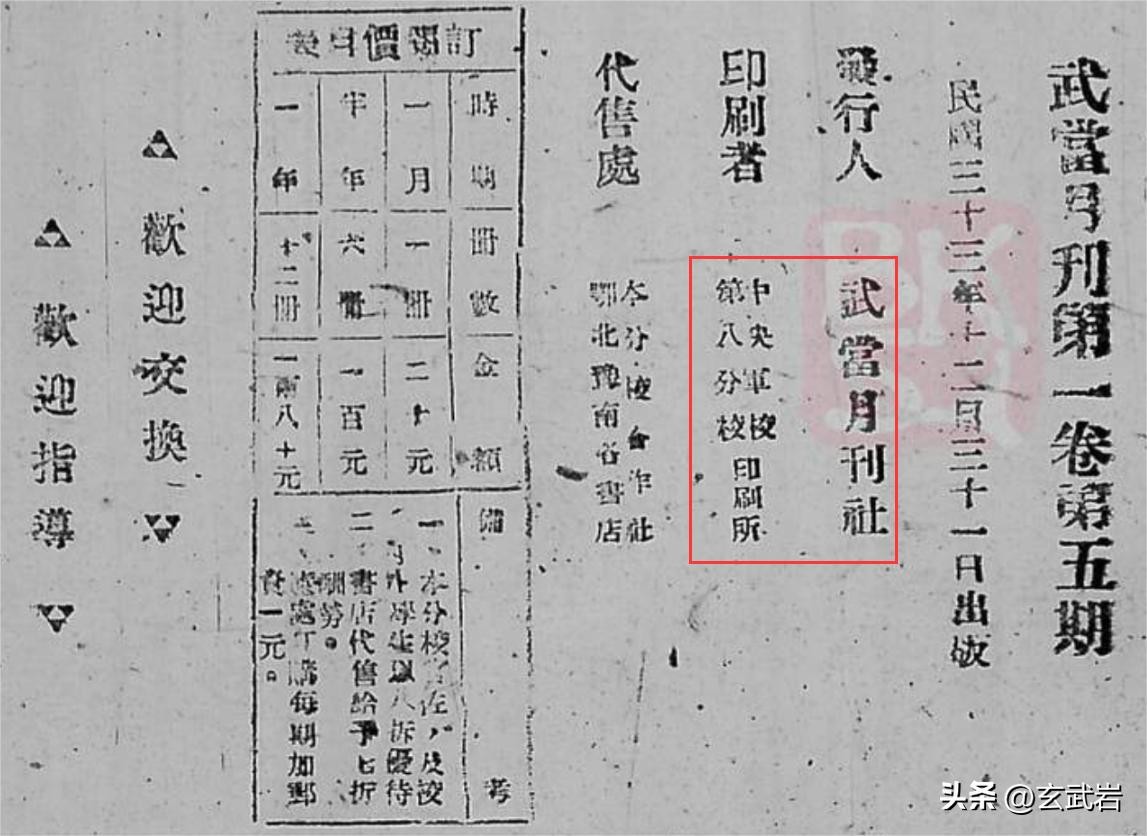 武當月刊第一卷第五期
民國三十三年十二月三十一日出版
發行人 武當月刊社
印刷者 中央軍校第八分校印刷所
代售處 本分校合作社
鄂北豫南各書店
訂閱價目表
時期 冊數 金額 備考
一月 一冊 二十元
半年 六冊 一百元
一年 十二冊 一百八十元
一、本分校官佐及校
外學生以八折優待
二、書店代售給予七折
酬勞。
三、處訂購每期加郵
費一元。
歡迎交換
歡迎指導
头条 @玄武岩